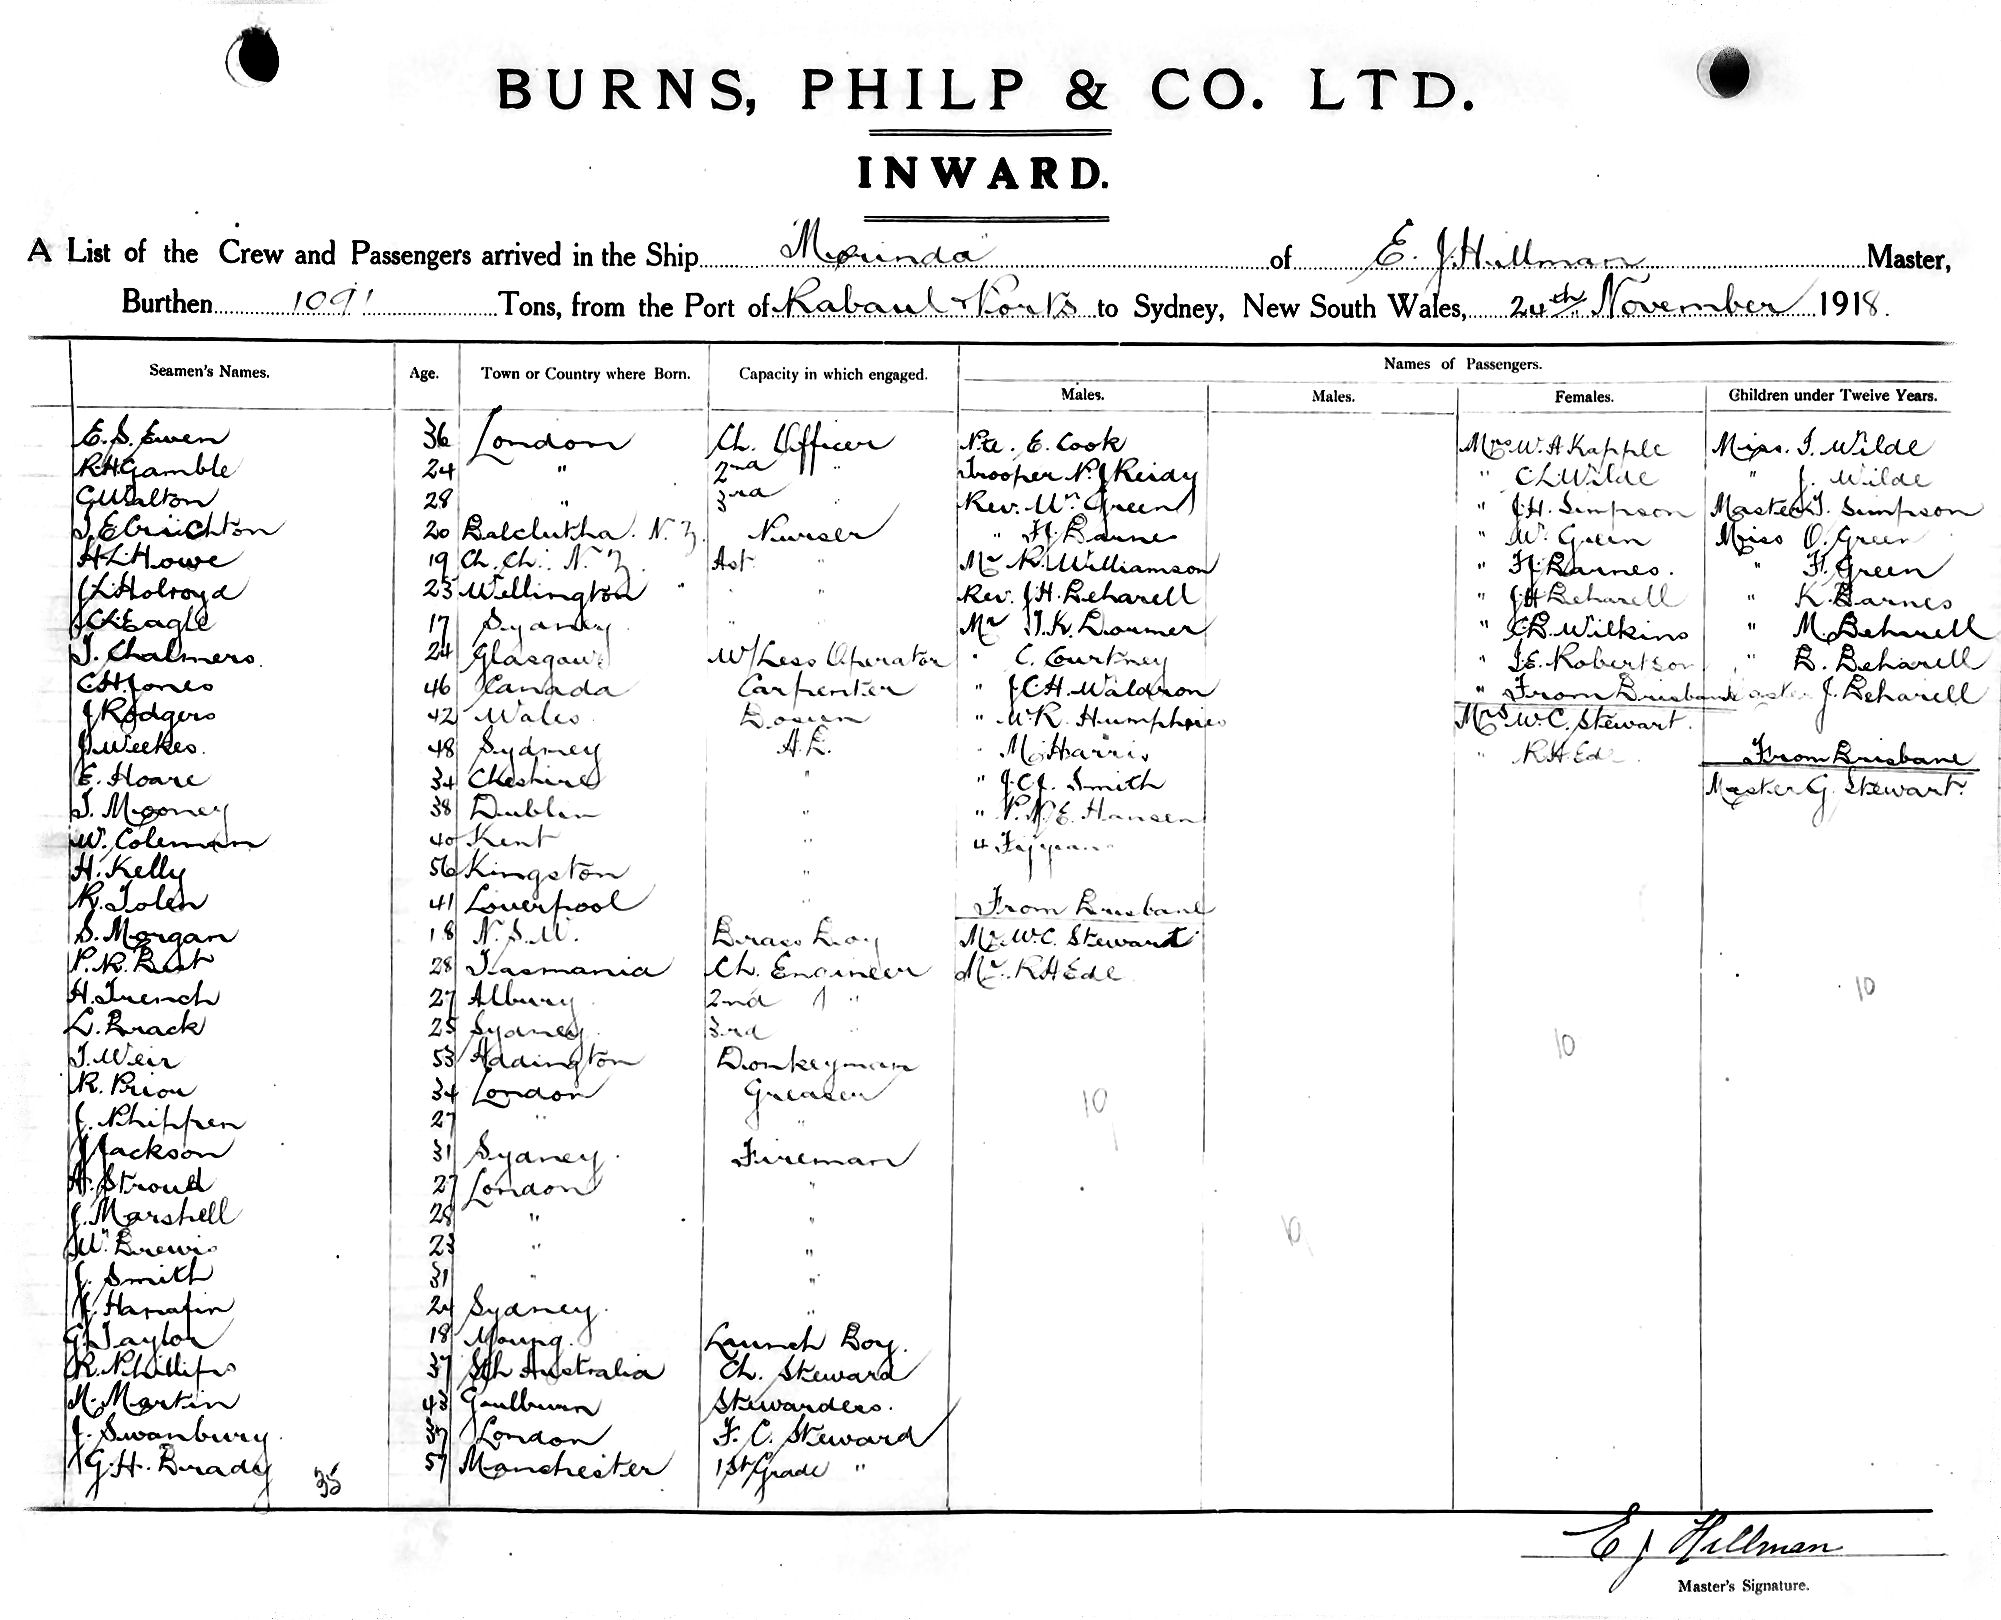 BURNS, PHILP & CO. LTD.
INWARD.
A List of the Crew and Passengers arrived in the Ship "Morinda" of E. J. Hillman Master,
Burthen 1091 Tons, from the Port of Rabaul & Ports to Sydney, New South Wales, 24th November 1918.
Seamen's Names. Age. Town or Country where Born. Capacity in which engaged. Names of Passengers.
Males. Males. Females. Children under Twelve Years.
E. S. Ewen 36 London Ch. Officer Pte. E. Cook Mrs W. A Kapple Miss. I. Wilde
R. H. Gamble 24 " 2nd " Trooper N. J Reidy " C L Wilde " J. Wilde
G Walton 28 " 3rd " Rev. Wm Green " J. H. Simpson Master T. Simpson
J. E Crichton 20 Balclutha. N. Z. Purser " H. Barnes " W. Green Miss O. Green
H L Howe 19 Ch. Ch. N. Z. Ast " Mr R. Williamson " H. Barnes. " F. Green
J L Holroyd 23 Wellington " " " Rev. J. H. Beharell " J H Beharell " K. Barnes
C. Eagle 17 Sydney. " " Mr T. K. Dormer " C B. Wilkins " M. Beharell
J. Chalmers. 24 Glasgow W/Less Operator " C. Courtney " J. E. Robertson " B. Beharell
C. H. Jones 46 Canada Carpenter " J. C. H. Waldron " From Brisbane Master J. Beharell
J Rodgers 42 Wales. Bosun " W. R. Humphries Mrs W. C. Stewart.
J. Weekes. 48 Sydney A. B. " M. Harris " R. H Ede. From Brisbane
E. Hoare 34 Cheshire " " J. C. J. Smith Master G. Stewart.
J. Mooney 38 Dublin " " P. N. E. Hansen
W. Coleman 40 Kent " 4 Fijians
H. Kelly 56 Kingston "
R. Tolen 41 Liverpool " From Brisbane
S. Morgan 18 N. S. W. Brass Boy Mr. W. C. Stewart
P. R. Best 28 Tasmania Ch. Engineer Mr. R H Ede
H. Trench 27 Albury 2nd " 10
L. Brack 25 Sydney. 3rd "
J. Weir 53 Addington Donkeyman 10
R. Prior 34 London Greaser 10
J. Phippen 27 " "
J Jackson 31 Sydney. Fireman
A. Stroud 27 London "
J. Marshell 28 " "
Wm Brewis 23 " " 10
J. Smith 31 " "
J. Hanafin 24 Sydney. "
G. Taylor 18 Young. Launch Boy.
R. Phillips 37 Sth Australia Ch. Steward
M. Martin 43 Goulburn Stewardess.
J. Swanbury. 37 London F. C. Steward
G. H. Brady 57 Manchester 1st Grade "
35
E J Hillman
Master's Signature.